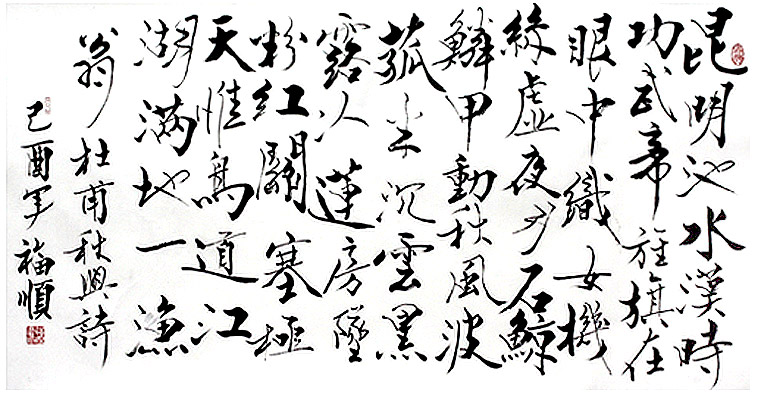 昆明池水漢時
功武帝旌旗在
眼中織女機
絲虛夜月石鯨
鱗甲動秋風波
菰米沉雲黑
露冷蓮房墜
粉紅關塞極
天惟鳥道江
湖滿地一漁
翁 杜甫秋興詩
己酉年 福順